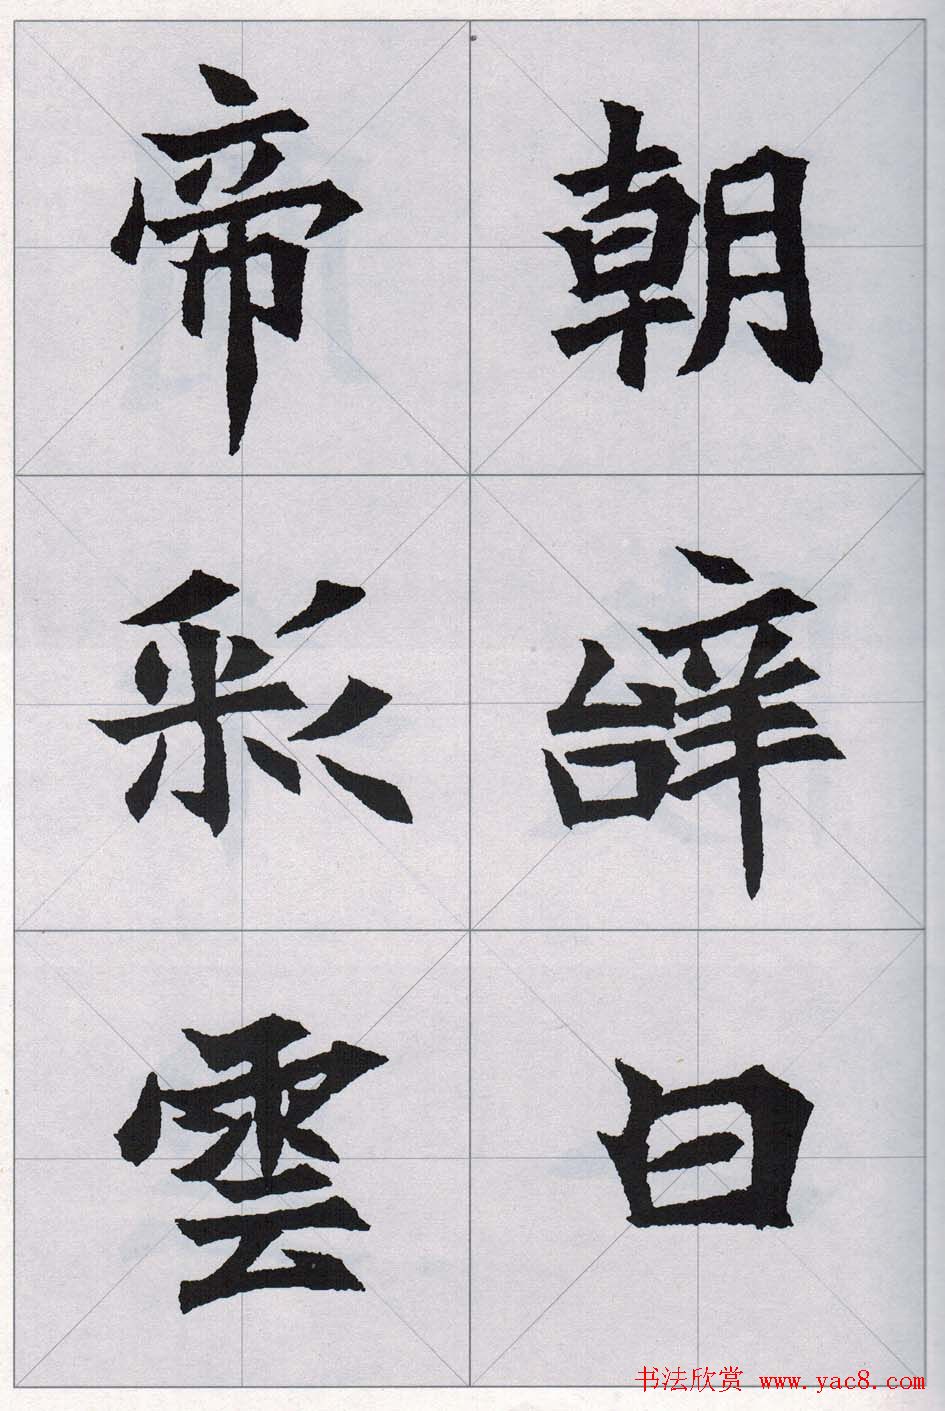 朝辝日
帝彩雲
书法欣赏 www.yac8.com